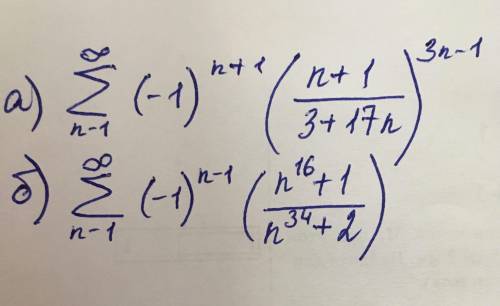 а) ∞∑n-1 (-1)^{n+1} ((n+1)/(3+17n))^{3n-1}
б) ∞∑n-1 (-1)^{n-1} ((n^{16}+1)/(n^{34}+2))